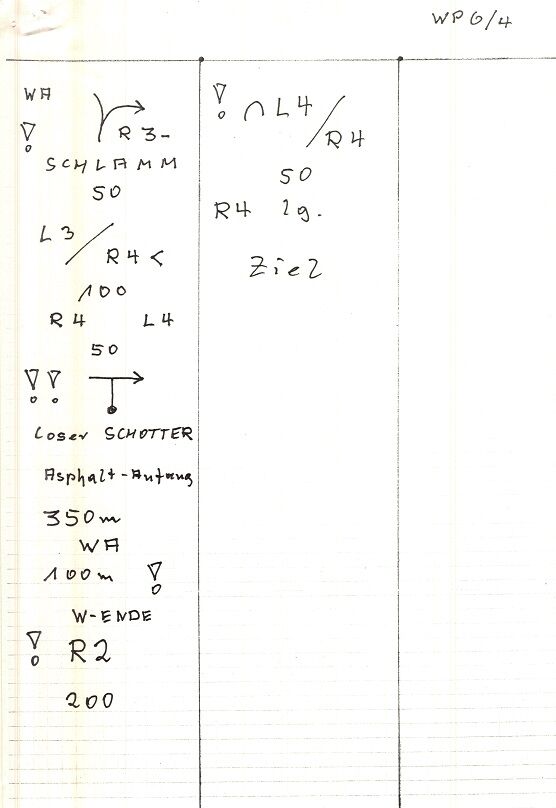 WP 6/4
WA
! R 3-
SCHLAMM
50
L3 / R4 <
100
R4 L4
50
!!
Loser SCHOTTER
Asphalt-Anfang
350m
WA
100m !
W-ENDE
! R2
200
! ∩ L4 / R4
50
R4 lg.
Ziel